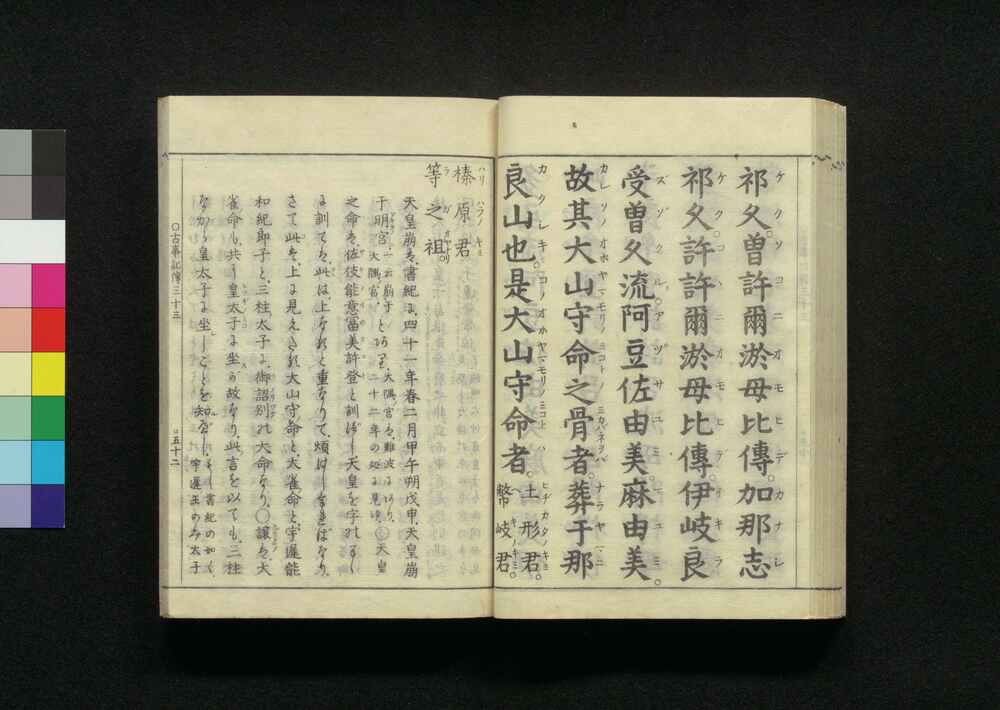 祁久。曽許爾淤母比傳。加那志
祁久。許許爾淤母比傳。伊岐良
受曽久流。阿豆佐由美。麻由美。
故其大山守命之骨者。葬于那
良山也。是大山守命者。土形君。
幣岐君。
榛原君
等之祖。
天皇崩は、書紀に、四十一年春二月甲午朔戊申、天皇崩
于明宮、一云崩于大隅宮、とあり、大隅宮は、難波にあり、二十二年の処に見ゆ、○天皇
之命は、佐伎能意富美許登と訓べし、天皇を字のまゝ
に訓ても、此は上なると重なりて、煩はしければなり、
さて此は、上に見えたる大山守命と大雀命と宇遅能
和紀郎子と、三柱太子に、御詔別の大命なり、○譲は、大
雀命も、共に皇太子に坐が故なり、此言を以ても、三柱
ながら皇太子に坐しことを知べし、書紀の如く、宇遅王のみ太子
○古事記傳三十三
五十二